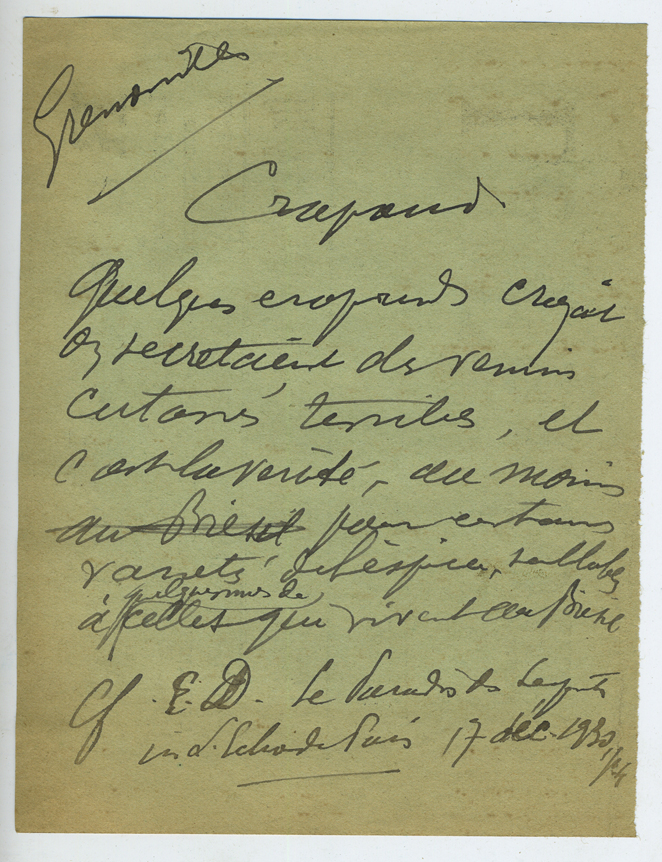 Grenouilles
Crapaud
Quelques crapauds croyait
on secretaient des venins
cutanés terribles, et
c'est la vérité, au moins
au Brésil pour certaines
variétés de l'espèce, semblables
quelques unes de
à celles qui vivent au Brésil
Cf. E. D. Le Paradis des Serpents
in L'Echo de Paris 17 déc. 1930